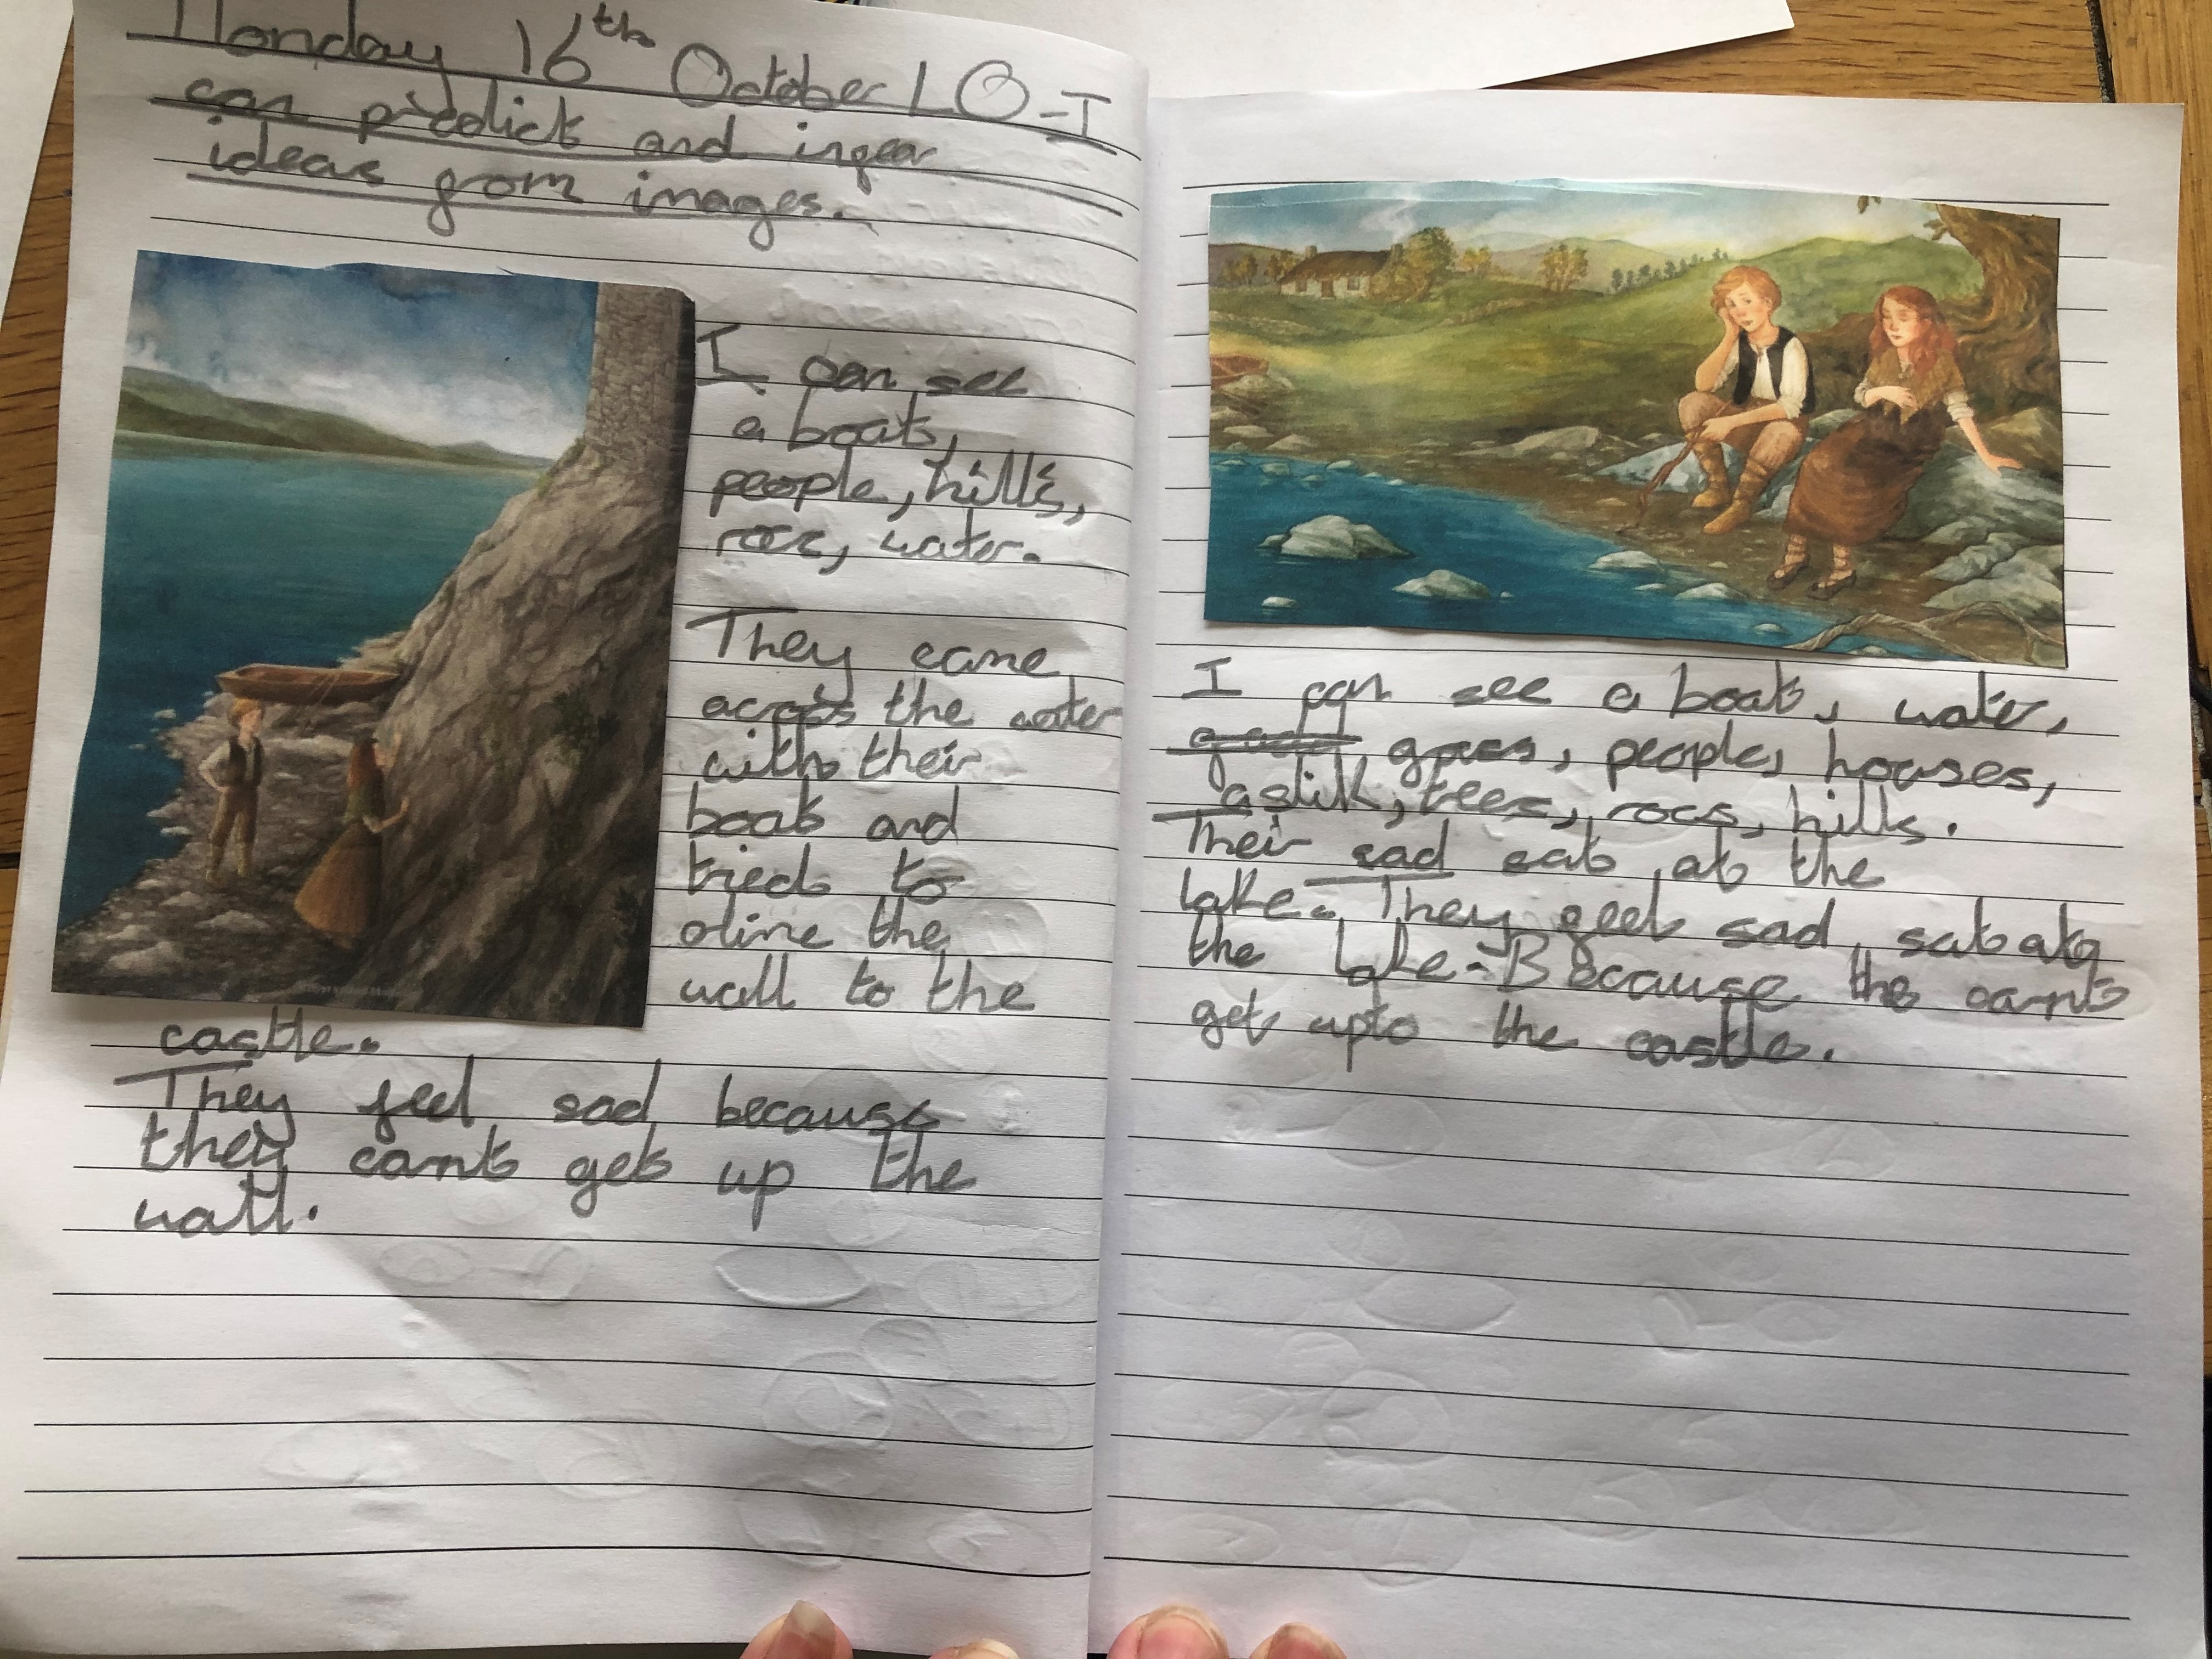 Monday 16th October LO-I
can predict and infear
ideas from images.
I can see
a boat,
people, hills,
rocz, water.
They came
across the water
with their
boat and
tried to
clime the
wall to the
castle.
They feel sad because
they can't get up the
wall.
I can see a boat, water,
grass, people, houses,
a stik, trees, rocs, hills.
Their sad sat at the
lake. They feel sad sat at
the lake. Because the can't
get upto the castle.